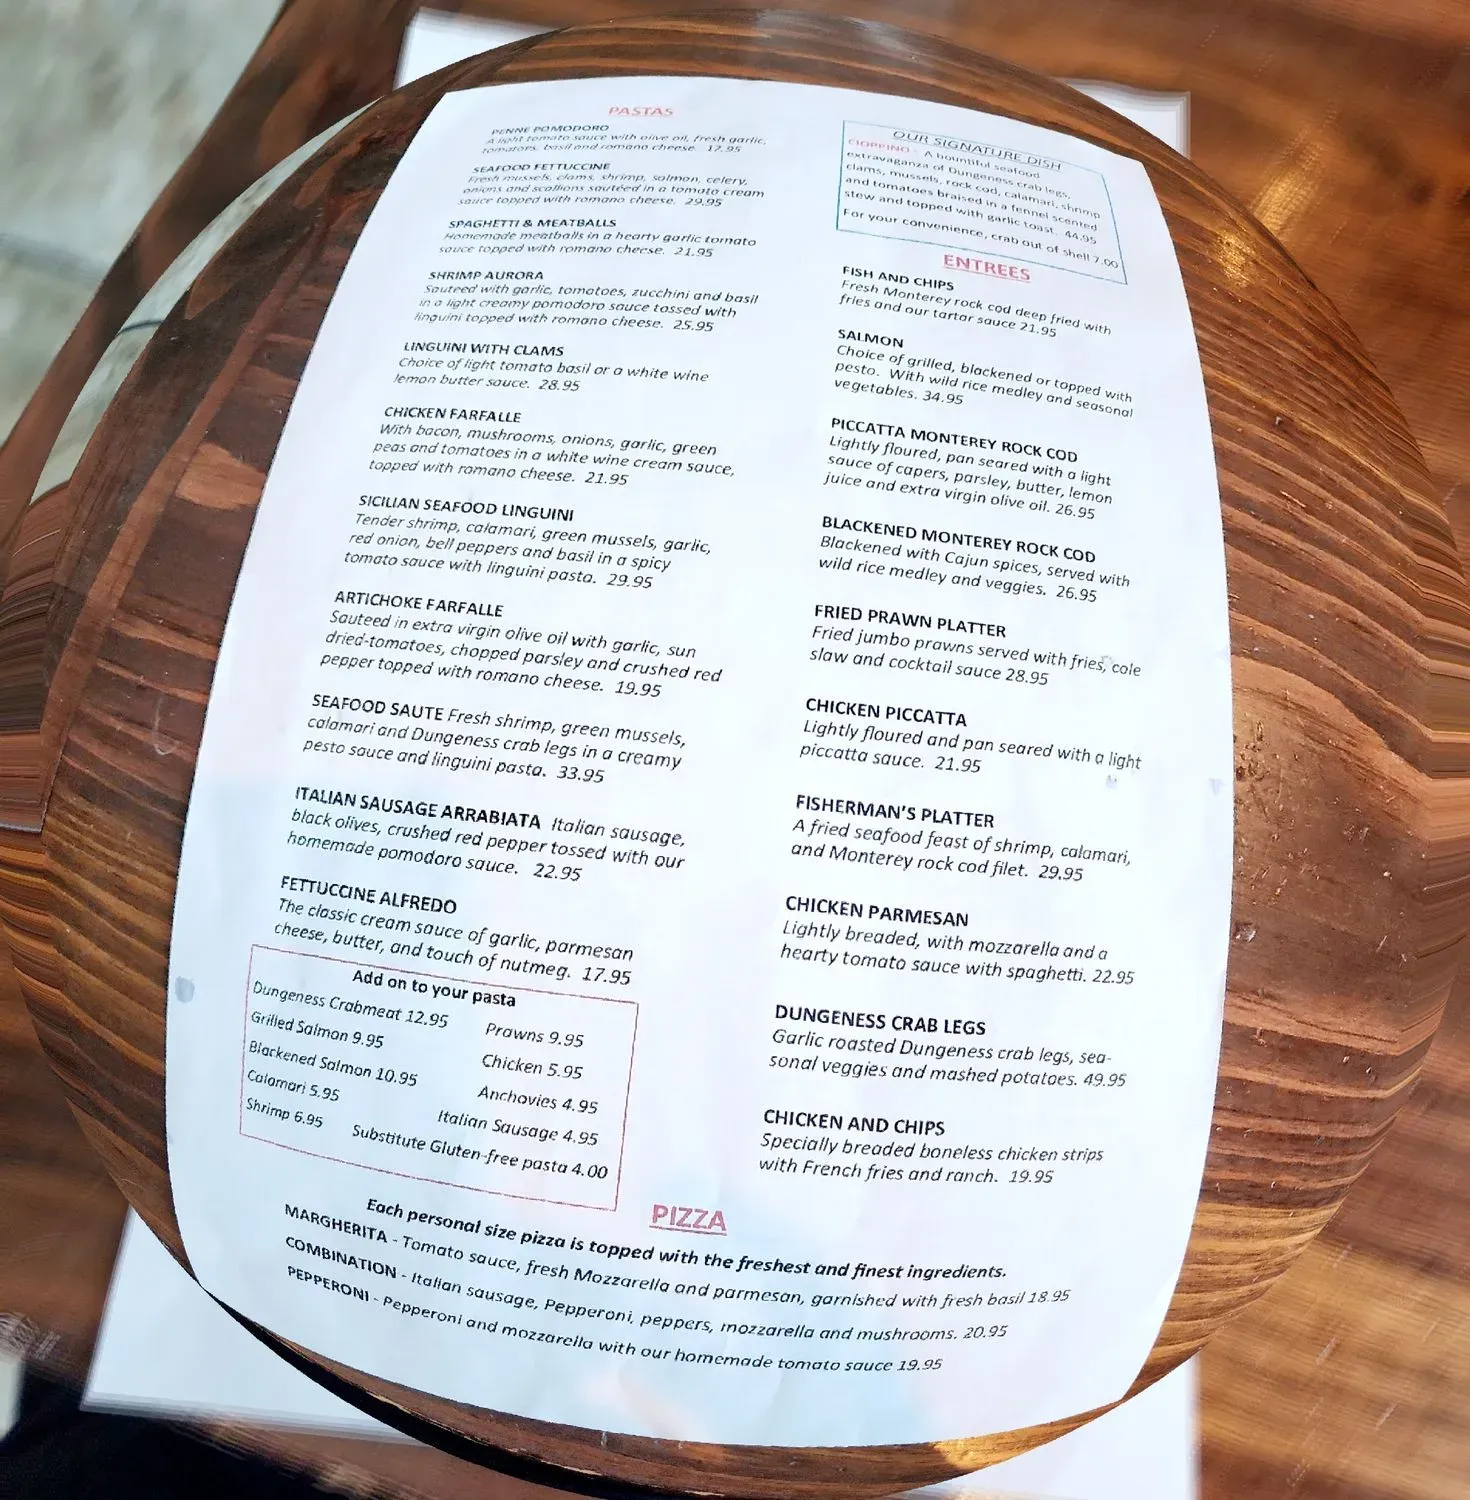 PASTAS
PENNE POMODORO
A light tomato sauce with olive oil, fresh garlic,
tomatoes, basil and romano cheese. 17.95
SEAFOOD FETTUCCINE
Fresh mussels, clams, shrimp, salmon, celery,
onions and scallions sautéed in a tomato cream
sauce topped with romano cheese. 29.95
SPAGHETTI & MEATBALLS
Homemade meatballs in a hearty garlic tomato
sauce topped with romano cheese. 21.95
SHRIMP AURORA
Sauteed with garlic, tomatoes, zucchini and basil
in a light creamy pomodoro sauce tossed with
linguini topped with romano cheese. 25.95
LINGUINI WITH CLAMS
Choice of light tomato basil or a white wine
lemon butter sauce. 28.95
CHICKEN FARFALLE
With bacon, mushrooms, onions, garlic, green
peas and tomatoes in a white wine cream sauce,
topped with romano cheese. 21.95
SICILIAN SEAFOOD LINGUINI
Tender shrimp, calamari, green mussels, garlic,
red onion, bell peppers and basil in a spicy
tomato sauce with linguini pasta. 29.95
ARTICHOKE FARFALLE
Sauteed in extra virgin olive oil with garlic, sun
dried-tomatoes, chopped parsley and crushed red
pepper topped with romano cheese. 19.95
SEAFOOD SAUTE Fresh shrimp, green mussels,
calamari and Dungeness crab legs in a creamy
pesto sauce and linguini pasta. 33.95
ITALIAN SAUSAGE ARRABIATA Italian sausage,
black olives, crushed red pepper tossed with our
homemade pomodoro sauce. 22.95
FETTUCCINE ALFREDO
The classic cream sauce of garlic, parmesan
cheese, butter, and touch of nutmeg. 17.95
Add on to your pasta
Dungeness Crabmeat 12.95
Grilled Salmon 9.95
Blackened Salmon 10.95
Calamari 5.95
Shrimp 6.95
Prawns 9.95
Chicken 5.95
Anchovies 4.95
Italian Sausage 4.95
Substitute Gluten-free pasta 4.00
OUR SIGNATURE DISH
CIOPPINO - A bountiful seafood
extravaganza of Dungeness crab legs,
clams, mussels, rock cod, calamari, shrimp
and tomatoes braised in a fennel scented
stew and topped with garlic toast. 44.95
For your convenience, crab out of shell 7.00
ENTREES
FISH AND CHIPS
Fresh Monterey rock cod deep fried with
fries and our tartar sauce 21.95
SALMON
Choice of grilled, blackened or topped with
pesto. With wild rice medley and seasonal
vegetables. 34.95
PICCATTA MONTEREY ROCK COD
Lightly floured, pan seared with a light
sauce of capers, parsley, butter, lemon
juice and extra virgin olive oil. 26.95
BLACKENED MONTEREY ROCK COD
Blackened with Cajun spices, served with
wild rice medley and veggies. 26.95
FRIED PRAWN PLATTER
Fried jumbo prawns served with fries, cole
slaw and cocktail sauce 28.95
CHICKEN PICCATTA
Lightly floured and pan seared with a light
piccatta sauce. 21.95
FISHERMAN'S PLATTER
A fried seafood feast of shrimp, calamari,
and Monterey rock cod filet. 29.95
CHICKEN PARMESAN
Lightly breaded, with mozzarella and a
hearty tomato sauce with spaghetti. 22.95
DUNGENESS CRAB LEGS
Garlic roasted Dungeness crab legs, sea-
sonal veggies and mashed potatoes. 49.95
CHICKEN AND CHIPS
Specially breaded boneless chicken strips
with French fries and ranch. 19.95
PIZZA
Each personal size pizza is topped with the freshest and finest ingredients.
MARGHERITA - Tomato sauce, fresh Mozzarella and parmesan, garnished with fresh basil 18.95
COMBINATION - Italian sausage, Pepperoni, peppers, mozzarella and mushrooms. 20.95
PEPPERONI - Pepperoni and mozzarella with our homemade tomato sauce 19.95